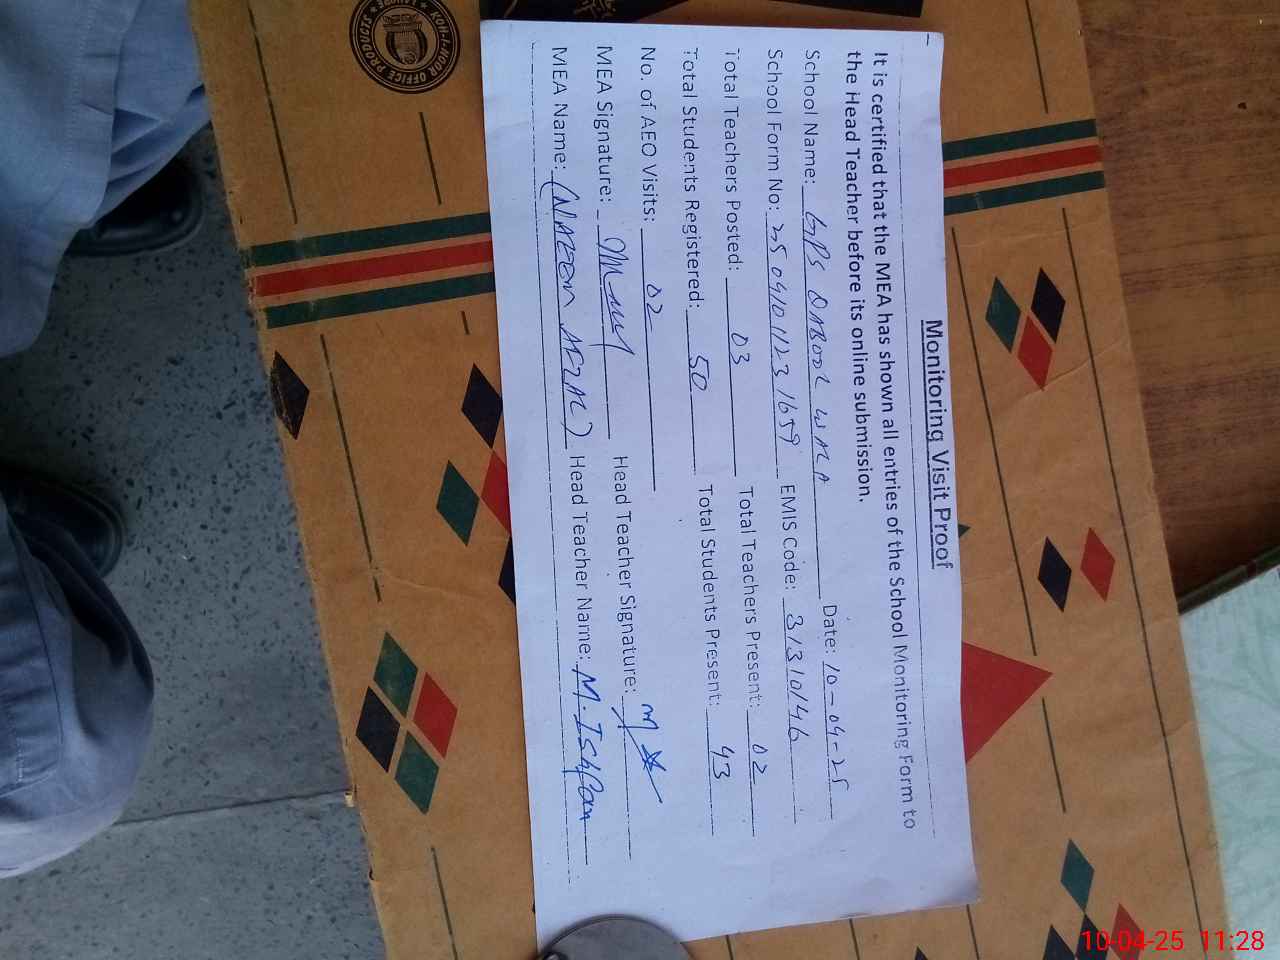 Monitoring Visit Proof
It is certified that the MEA has shown all entries of the School Monitoring Form to
the Head Teacher before its online submission.
School Name: GPS DABOOL WALA Date: 10-04-25
School Form No: 2504101123 1659 EMIS Code: 31310146
Total Teachers Posted: 03 Total Teachers Present: 02
Total Students Registered: 50 Total Students Present: 43
No. of AEO Visits: 02
MEA Signature: Head Teacher Signature:
MEA Name: (NAEEM AFZAL) Head Teacher Name: M. Ishfaq
KOH-I-NOOR OFFICE PRODUCTS
10-04-25 11:28